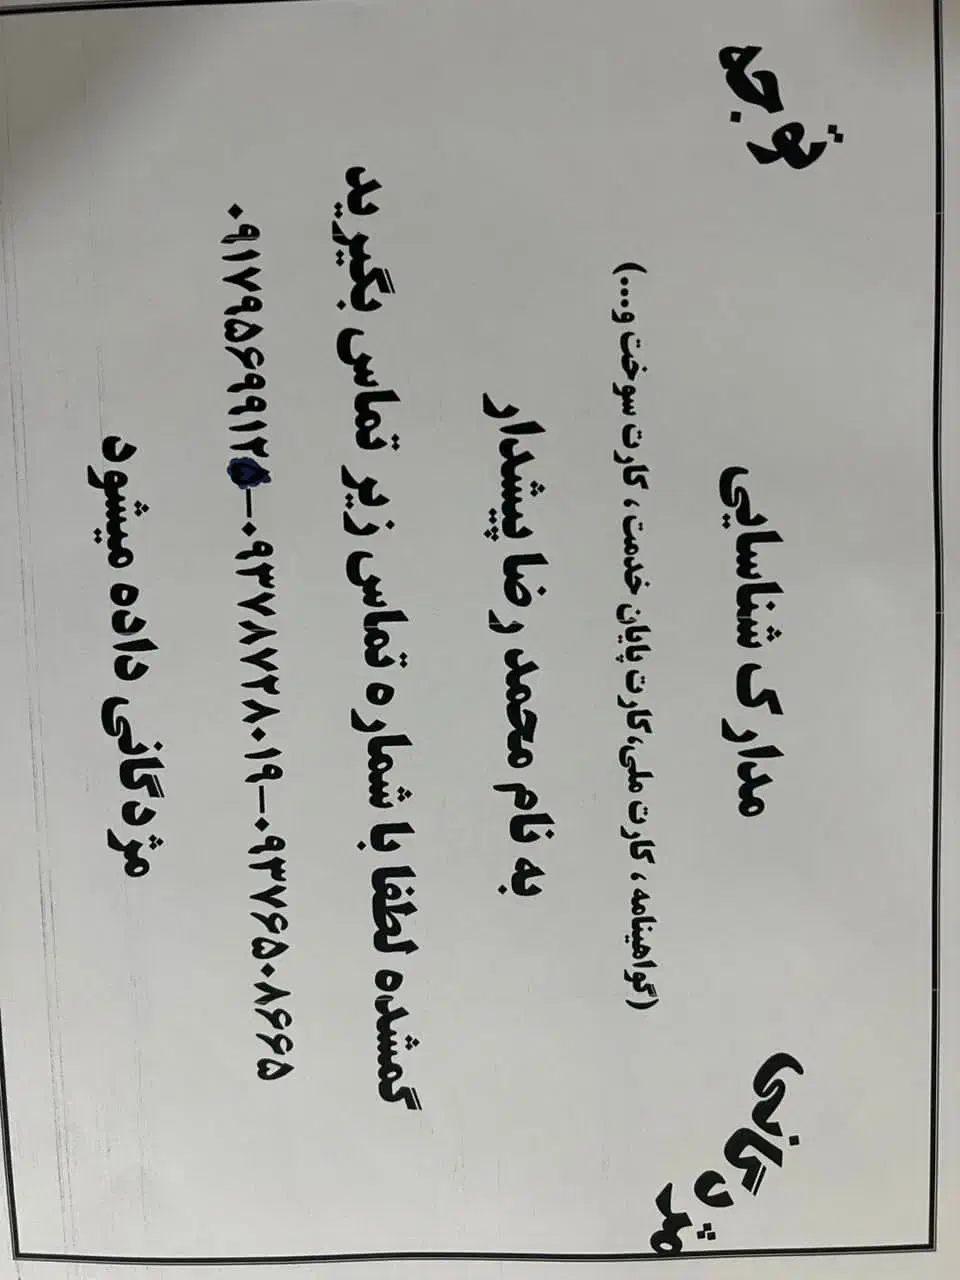 مژدگانی
توجه
مدارک شناسایی
(گواهینامه ، کارت ملی،کارت پایان خدمت ، کارت سوخت و...)
به نام محمد رضا پیشدار
گمشده لطفا با شماره تماس زیر تماس بگیرید
۰۹۱۷۹۵۶۹۹۱۲۵-۰۹۳۷۸۷۲۸۰۱۹-۰۹۳۷۶۵۰۸۶۶۵
مژدگانی داده میشود